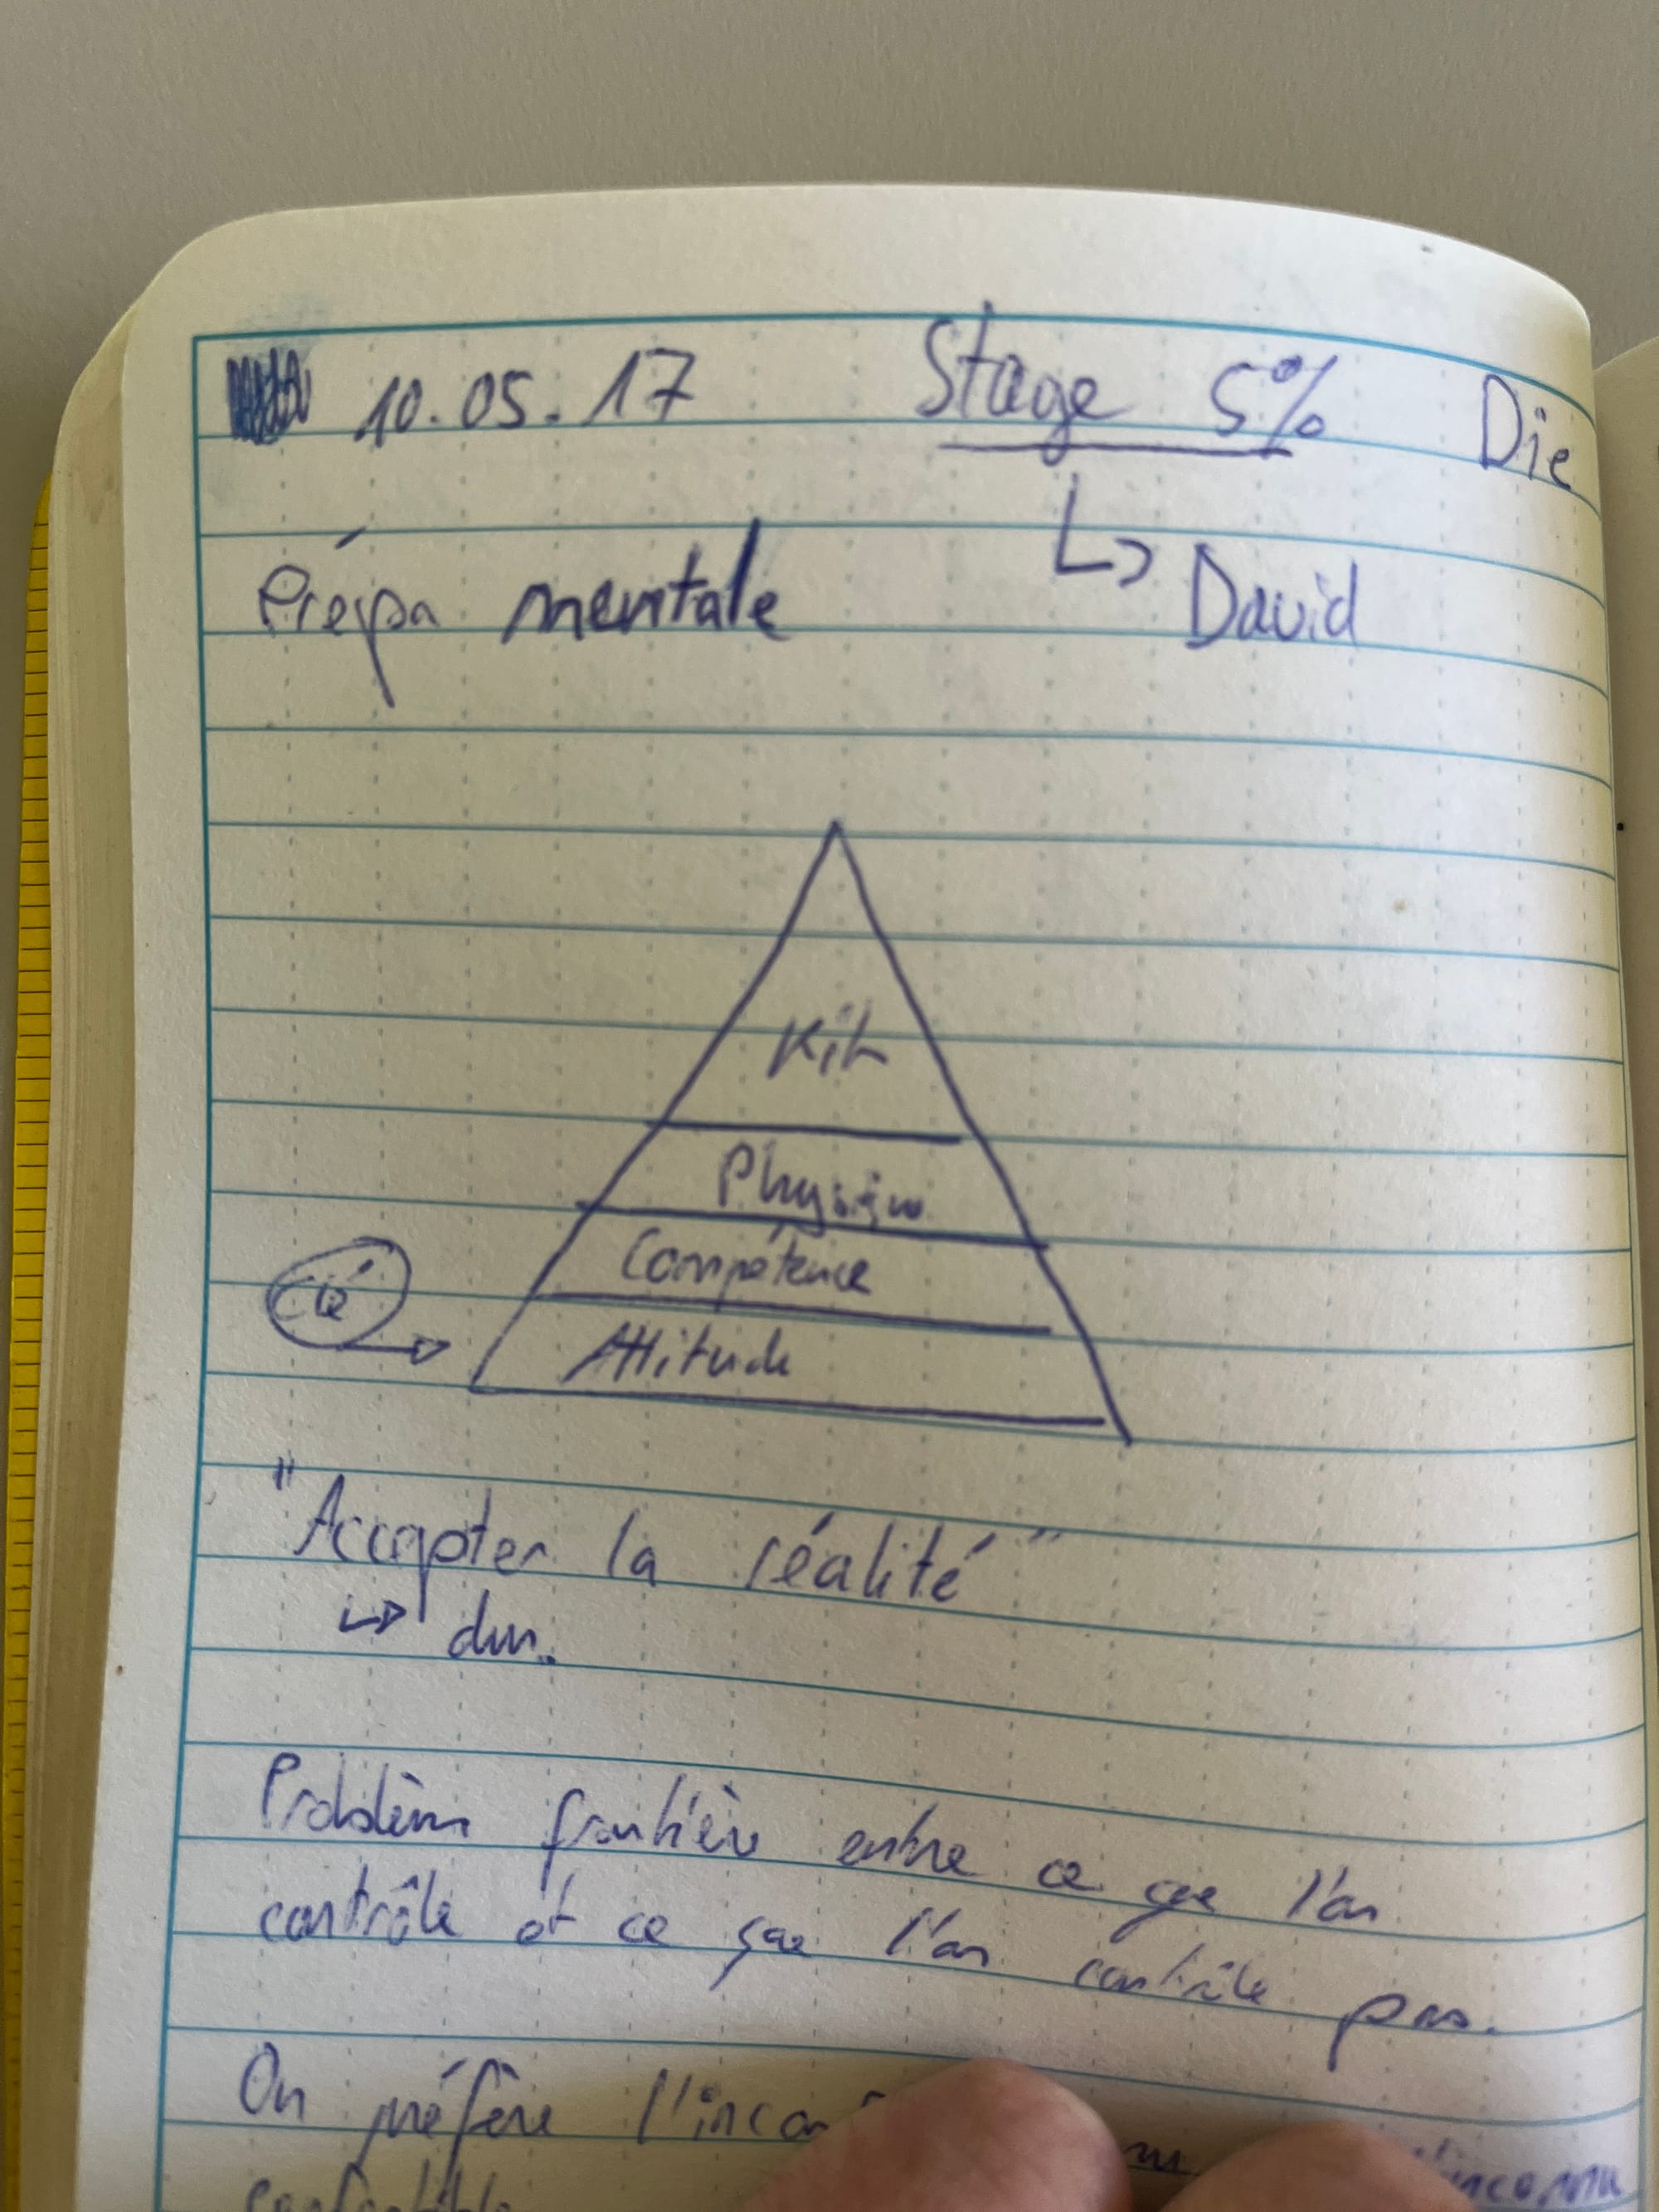 10.05.17 Stage 5% Die
Prépa mentale ↳ David
Kit
Physique
Compétence
Clé →
Attitude
"Accepter la réalité"
↳ dur.
Problème frontière entre ce que l'on
contrôle et ce que l'on contrôle pas.
On préfère